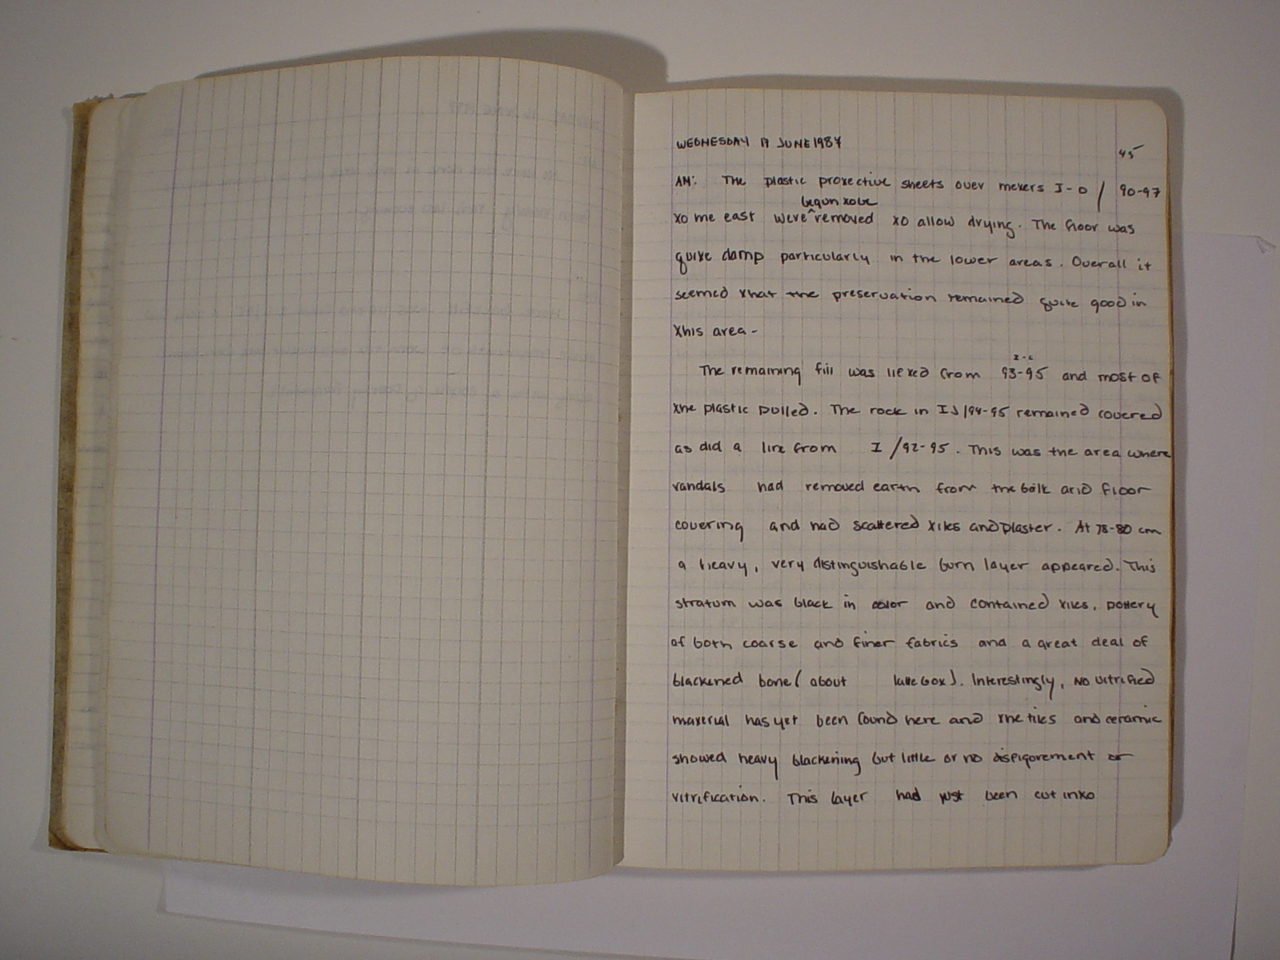 WEDNESDAY 17 JUNE 1987
45
AM: The plastic protective sheets over meters I-O / 90-97
begun to be
to the east were ^ removed to allow drying. The floor was
quite damp particularly in the lower areas. Overall it
seemed that the preservation remained quite good in
this area-
The remaining fill was lifted from 93-95 and most of
the plastic pulled. The rock in IJ/94-95 remained covered
as did a line from I /92-95. This was the area where
vandals had removed earth from the balk and floor
covering and had scattered tiles and plaster. At 78-80 cm
a heavy, very distinguishable burn layer appeared. This
stratum was black in color and contained tiles, pottery
of both coarse and finer fabrics and a great deal of
blackened bone (about box). Interestingly, no vitrified
material has yet been found here and the tiles and ceramic
showed heavy blackening but little or no disfigurement or
vitrification. This layer had just been cut into